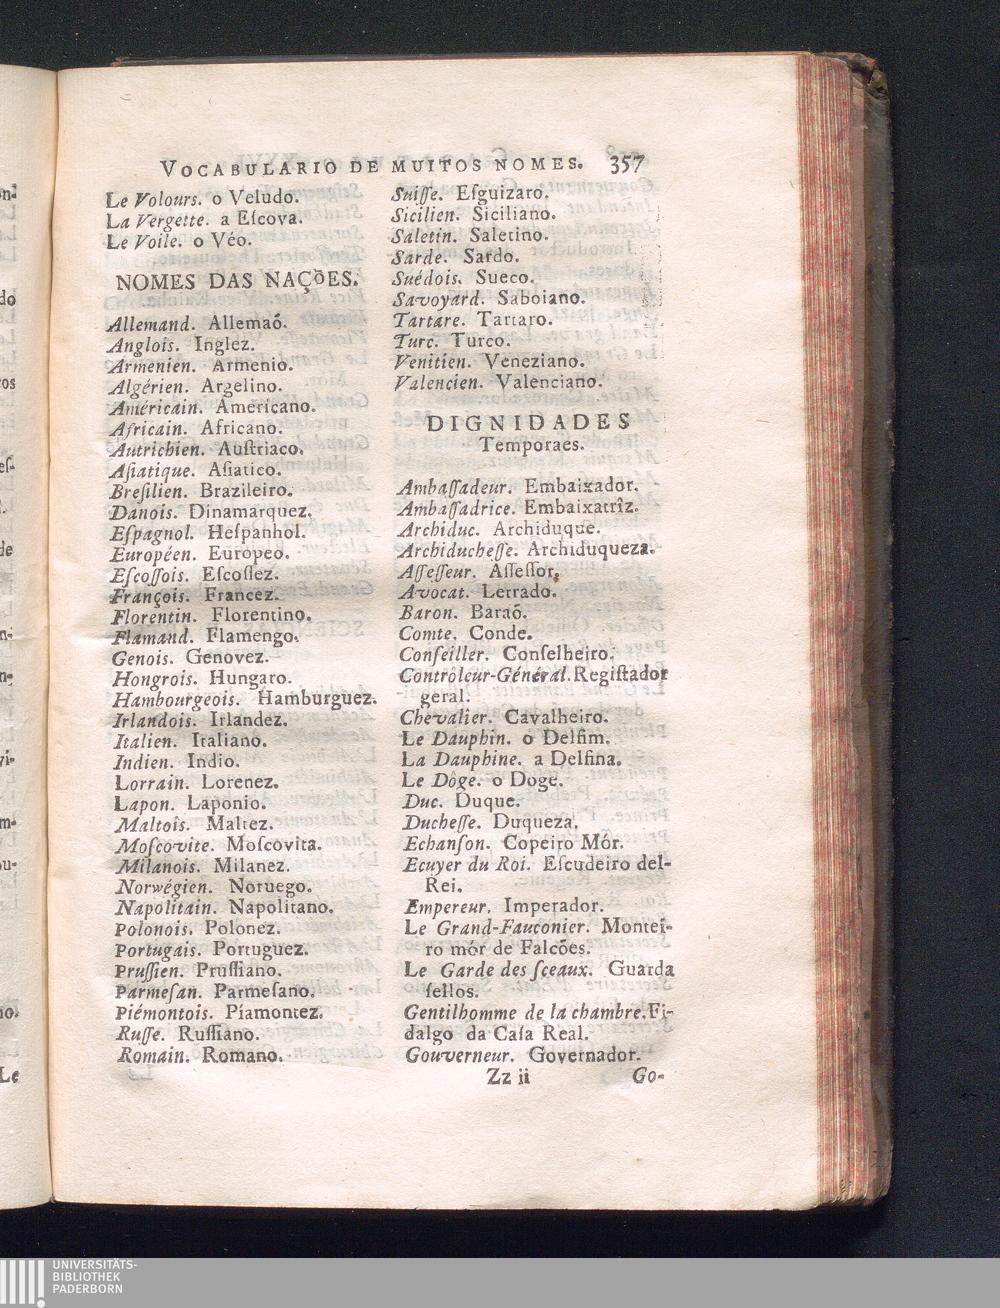 VOCABULARIO DE MUITOS NOMES. 357
Le Volours. o Veludo.
La Vergette. a Eſcova.
Le Voile. o Véo.
NOMES DAS NAÇÕES.
Allemand. Allemaõ.
Anglois. Inglez.
Armenien. Armenio.
Algérien. Argelino.
Américain. Americano.
Africain. Africano.
Autrichien. Auſtriaco.
Aſiatique. Aſiatico.
Breſilien. Brazileiro.
Danois. Dinamarquez.
Eſpagnol. Heſpanhol.
Européen. Europeo.
Eſcoſſois. Eſcoſſez.
François. Francez.
Florentin. Florentino.
Flamand. Flamengo.
Genois. Genovez.
Hongrois. Hungaro.
Hambourgeois. Hamburguez.
Irlandois. Irlandez.
Italien. Italiano.
Indien. Indio.
Lorrain. Lorenez.
Lapon. Laponio.
Maltois. Maltez.
Moſcovite. Moſcovita.
Milanois. Milanez.
Norwégien. Noruego.
Napolitain. Napolitano.
Polonois. Polonez.
Portugais. Portuguez.
Pruſſien. Pruſſiano.
Parmeſan. Parmeſano.
Piémontois. Piamontez.
Ruſſe. Ruſſiano.
Romain. Romano.
Suiſſe. Eſguizaro.
Sicilien. Siciliano.
Saletin. Saletino.
Sarde. Sardo.
Suédois. Sueco.
Savoyard. Saboiano.
Tartare. Tartaro.
Turc. Turco.
Venitien. Veneziano.
Valencien. Valenciano.
DIGNIDADES
Temporaes.
Ambaſſadeur. Embaixador.
Ambaſſadrice. Embaixatrîz.
Archiduc. Archiduque.
Archiducheſſe. Archiduqueza.
Aſſeſſeur. Aſſeſſor.
Avocat. Letrado.
Baron. Baraõ.
Comte. Conde.
Conſeiller. Conſelheiro.
Contrôleur-Général. Regiſtador
geral.
Chevalier. Cavalheiro.
Le Dauphin. o Delfim.
La Dauphine. a Delfina.
Le Dôge. o Doge.
Duc. Duque.
Ducheſſe. Duqueza.
Echanſon. Copeiro Mór.
Ecuyer du Roi. Eſcudeiro del-
Rei.
Empereur. Imperador.
Le Grand-Fauconier. Montei-
ro mór de Falcões.
Le Garde des ſceaux. Guarda
ſellos.
Gentilhomme de la chambre. Fi-
dalgo da Caſa Real.
Gouverneur. Governador.
Zz ii Go-
UNIVERSITÄTS-
BIBLIOTHEK
PADERBORN